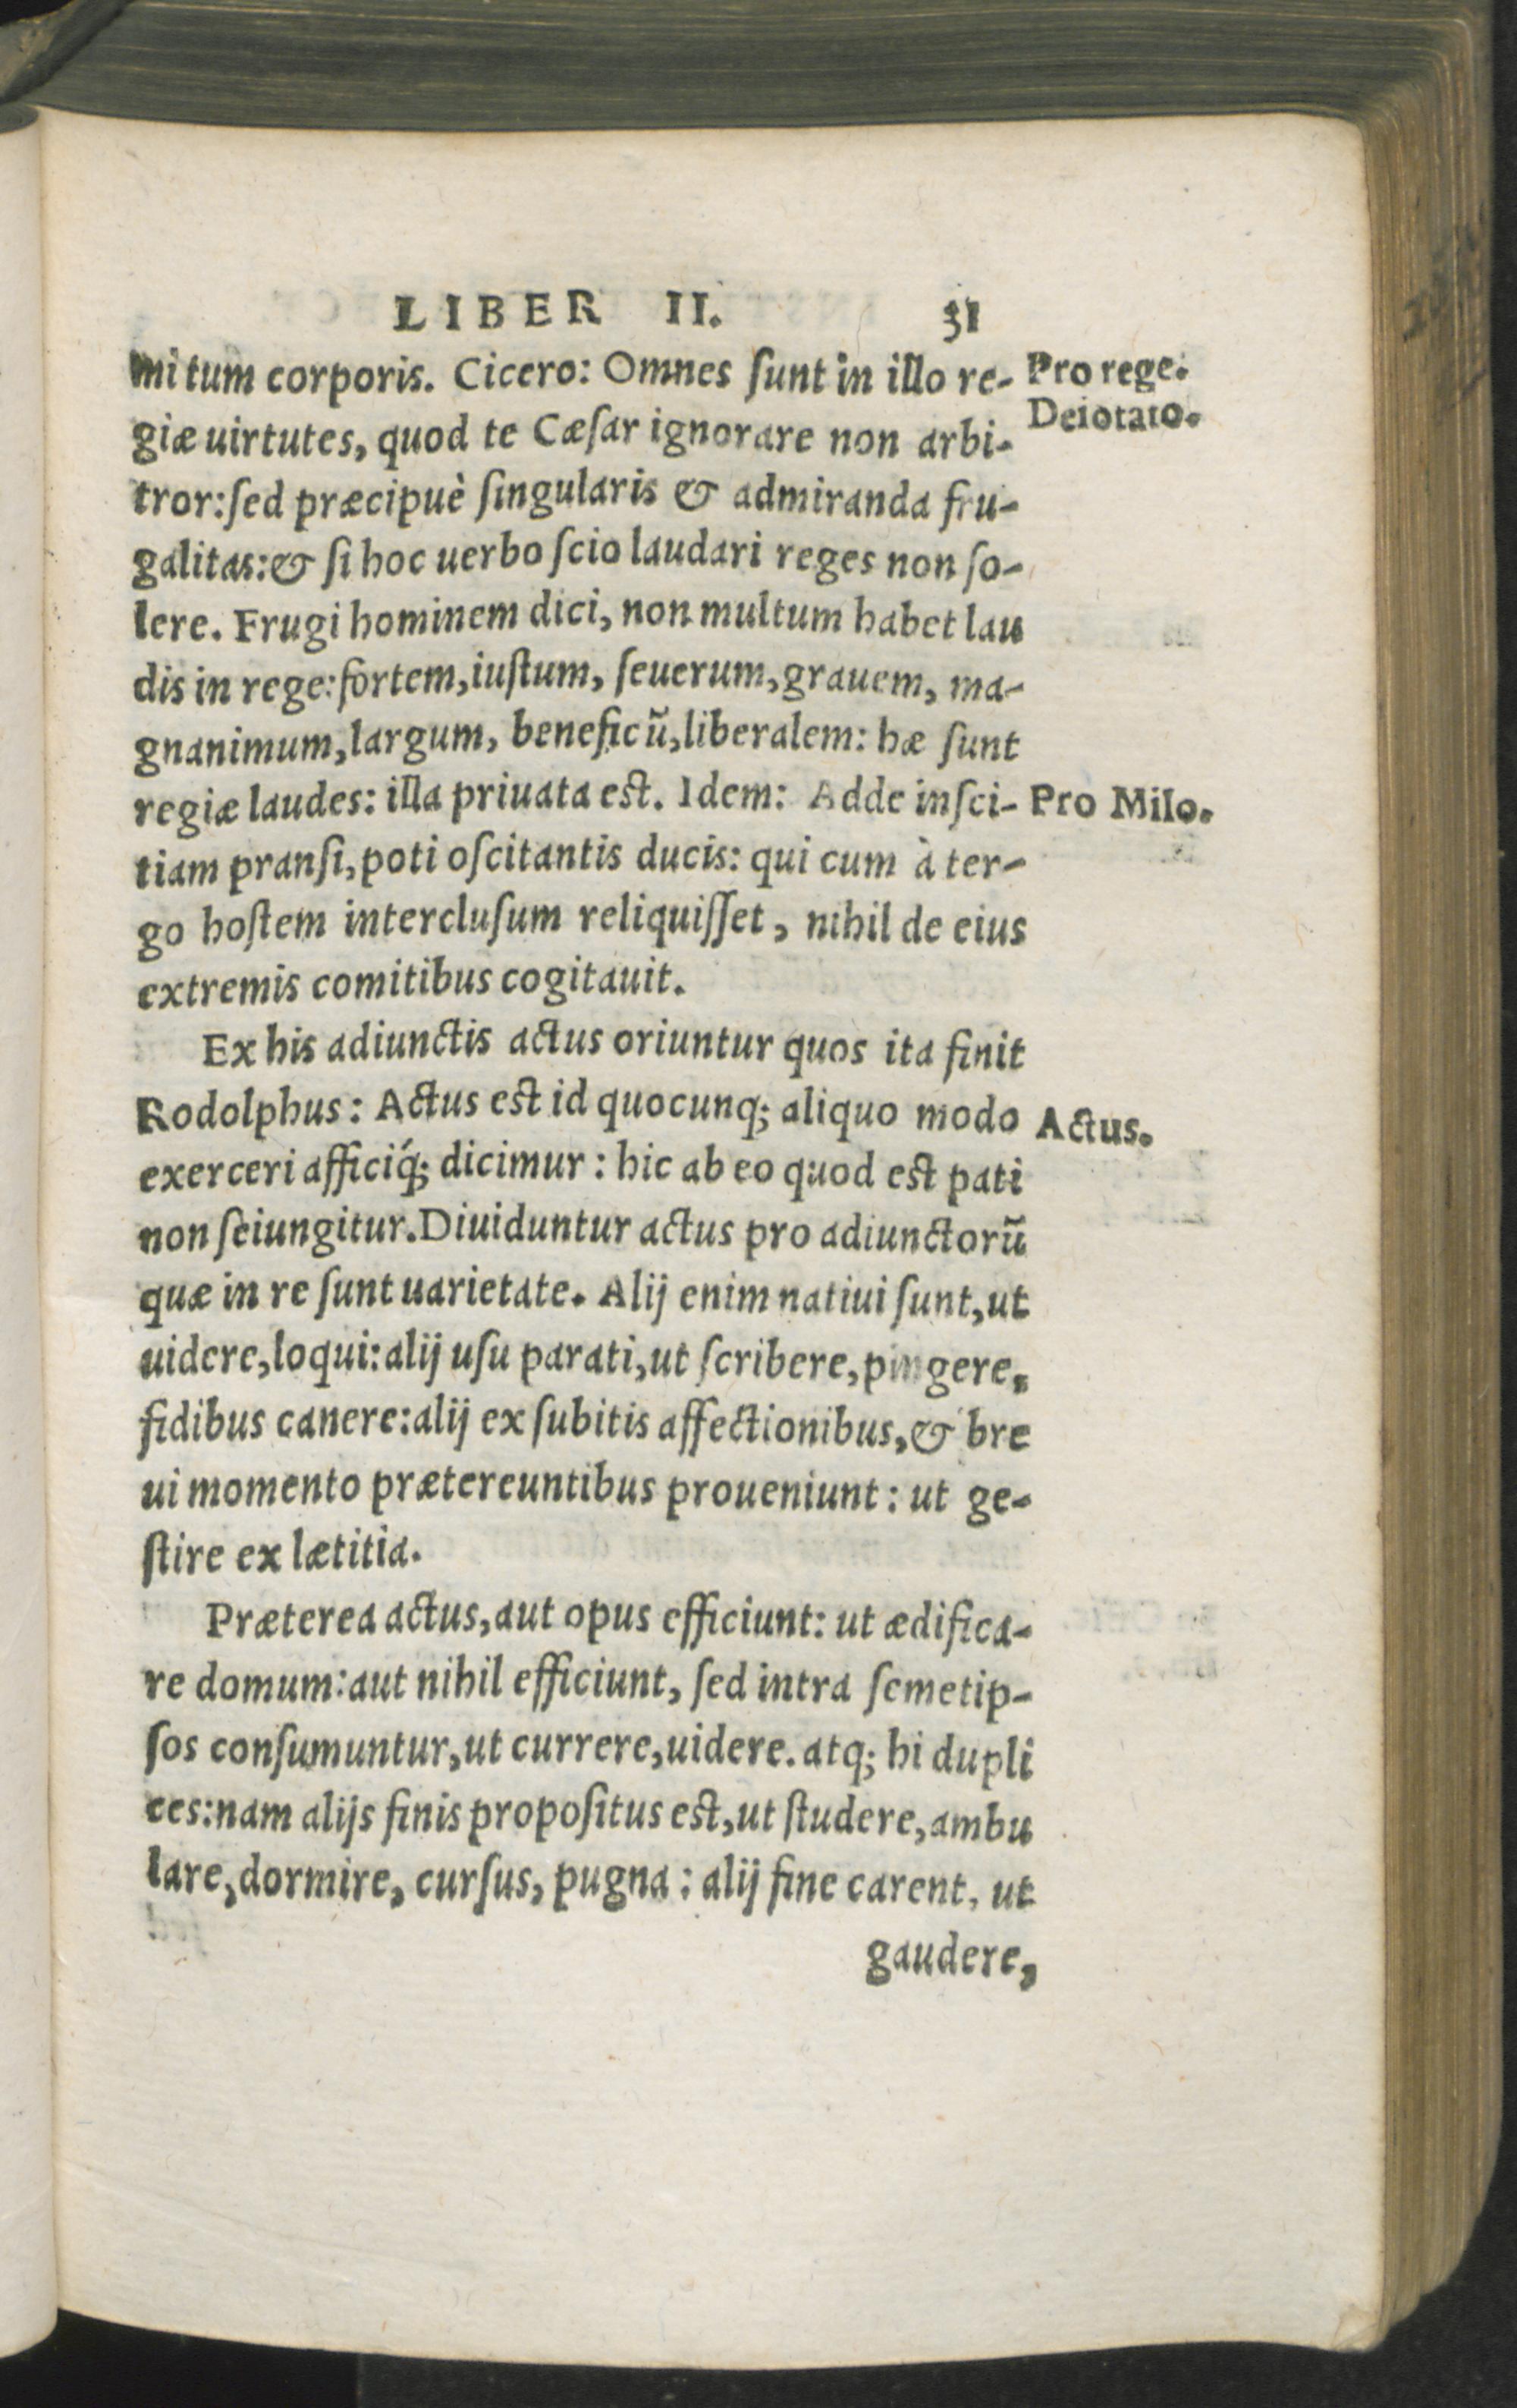 LIBER II. 31
mi tum corporis. Cicero: Omnes ſunt in illo re-
Pro rege.
giæ uirtutes, quod te Cæſar ignorare non arbi-
Deiotaro.
tror: ſed præcipuè ſingularis & admiranda fru-
galitas: & ſi hoc uerbo ſcio laudari reges non ſo-
lere. Frugi hominem dici, non multum habet lau
dis in rege: fortem, iuſtum, ſeuerum, grauem, ma-
gnanimum, largum, beneficũ, liberalem: hæ ſunt
regiæ laudes: illa priuata est. Idem: Adde inſci-
Pro Milo.
tiam pranſi, poti oſcitantis ducis: qui cum à ter-
go hoſtem intercluſum reliquiſſet, nihil de eius
extremis comitibus cogitauit.
Ex his adiunctis actus oriuntur quos ita finit
Rodolphus: Actus est id quocunq; aliquo modo
Actus.
exerceri afficiq́; dicimur: hic ab eo quod est pati
non ſeiungitur. Diuiduntur actus pro adiunctorũ
quæ in re ſunt uarietate. Alij enim natiui ſunt, ut
uidere, loqui: alij uſu parati, ut ſcribere, pingere,
fidibus canere: alij ex ſubitis affectionibus, & bre
ui momento prætereuntibus proueniunt: ut ge-
ſtire ex lætitia.
Præterea actus, aut opus efficiunt: ut ædifica-
re domum: aut nihil efficiunt, ſed intra ſemetip-
ſos conſumuntur, ut currere, uidere. atq; hi dupli
ces: nam alijs finis propoſitus est, ut ſtudere, ambu
lare, dormire, curſus, pugna: alij fine carent, ut
gaudere,